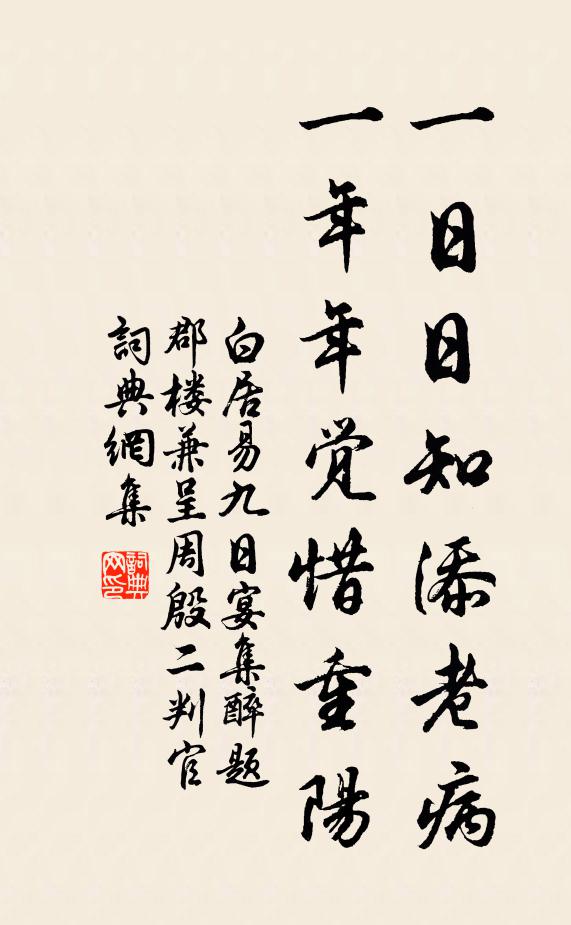 一日日知添老病
一年年觉惜重陽
白居易九日宴集醉题
郡楼兼呈周殷二判官
詞典網集
詞典网印